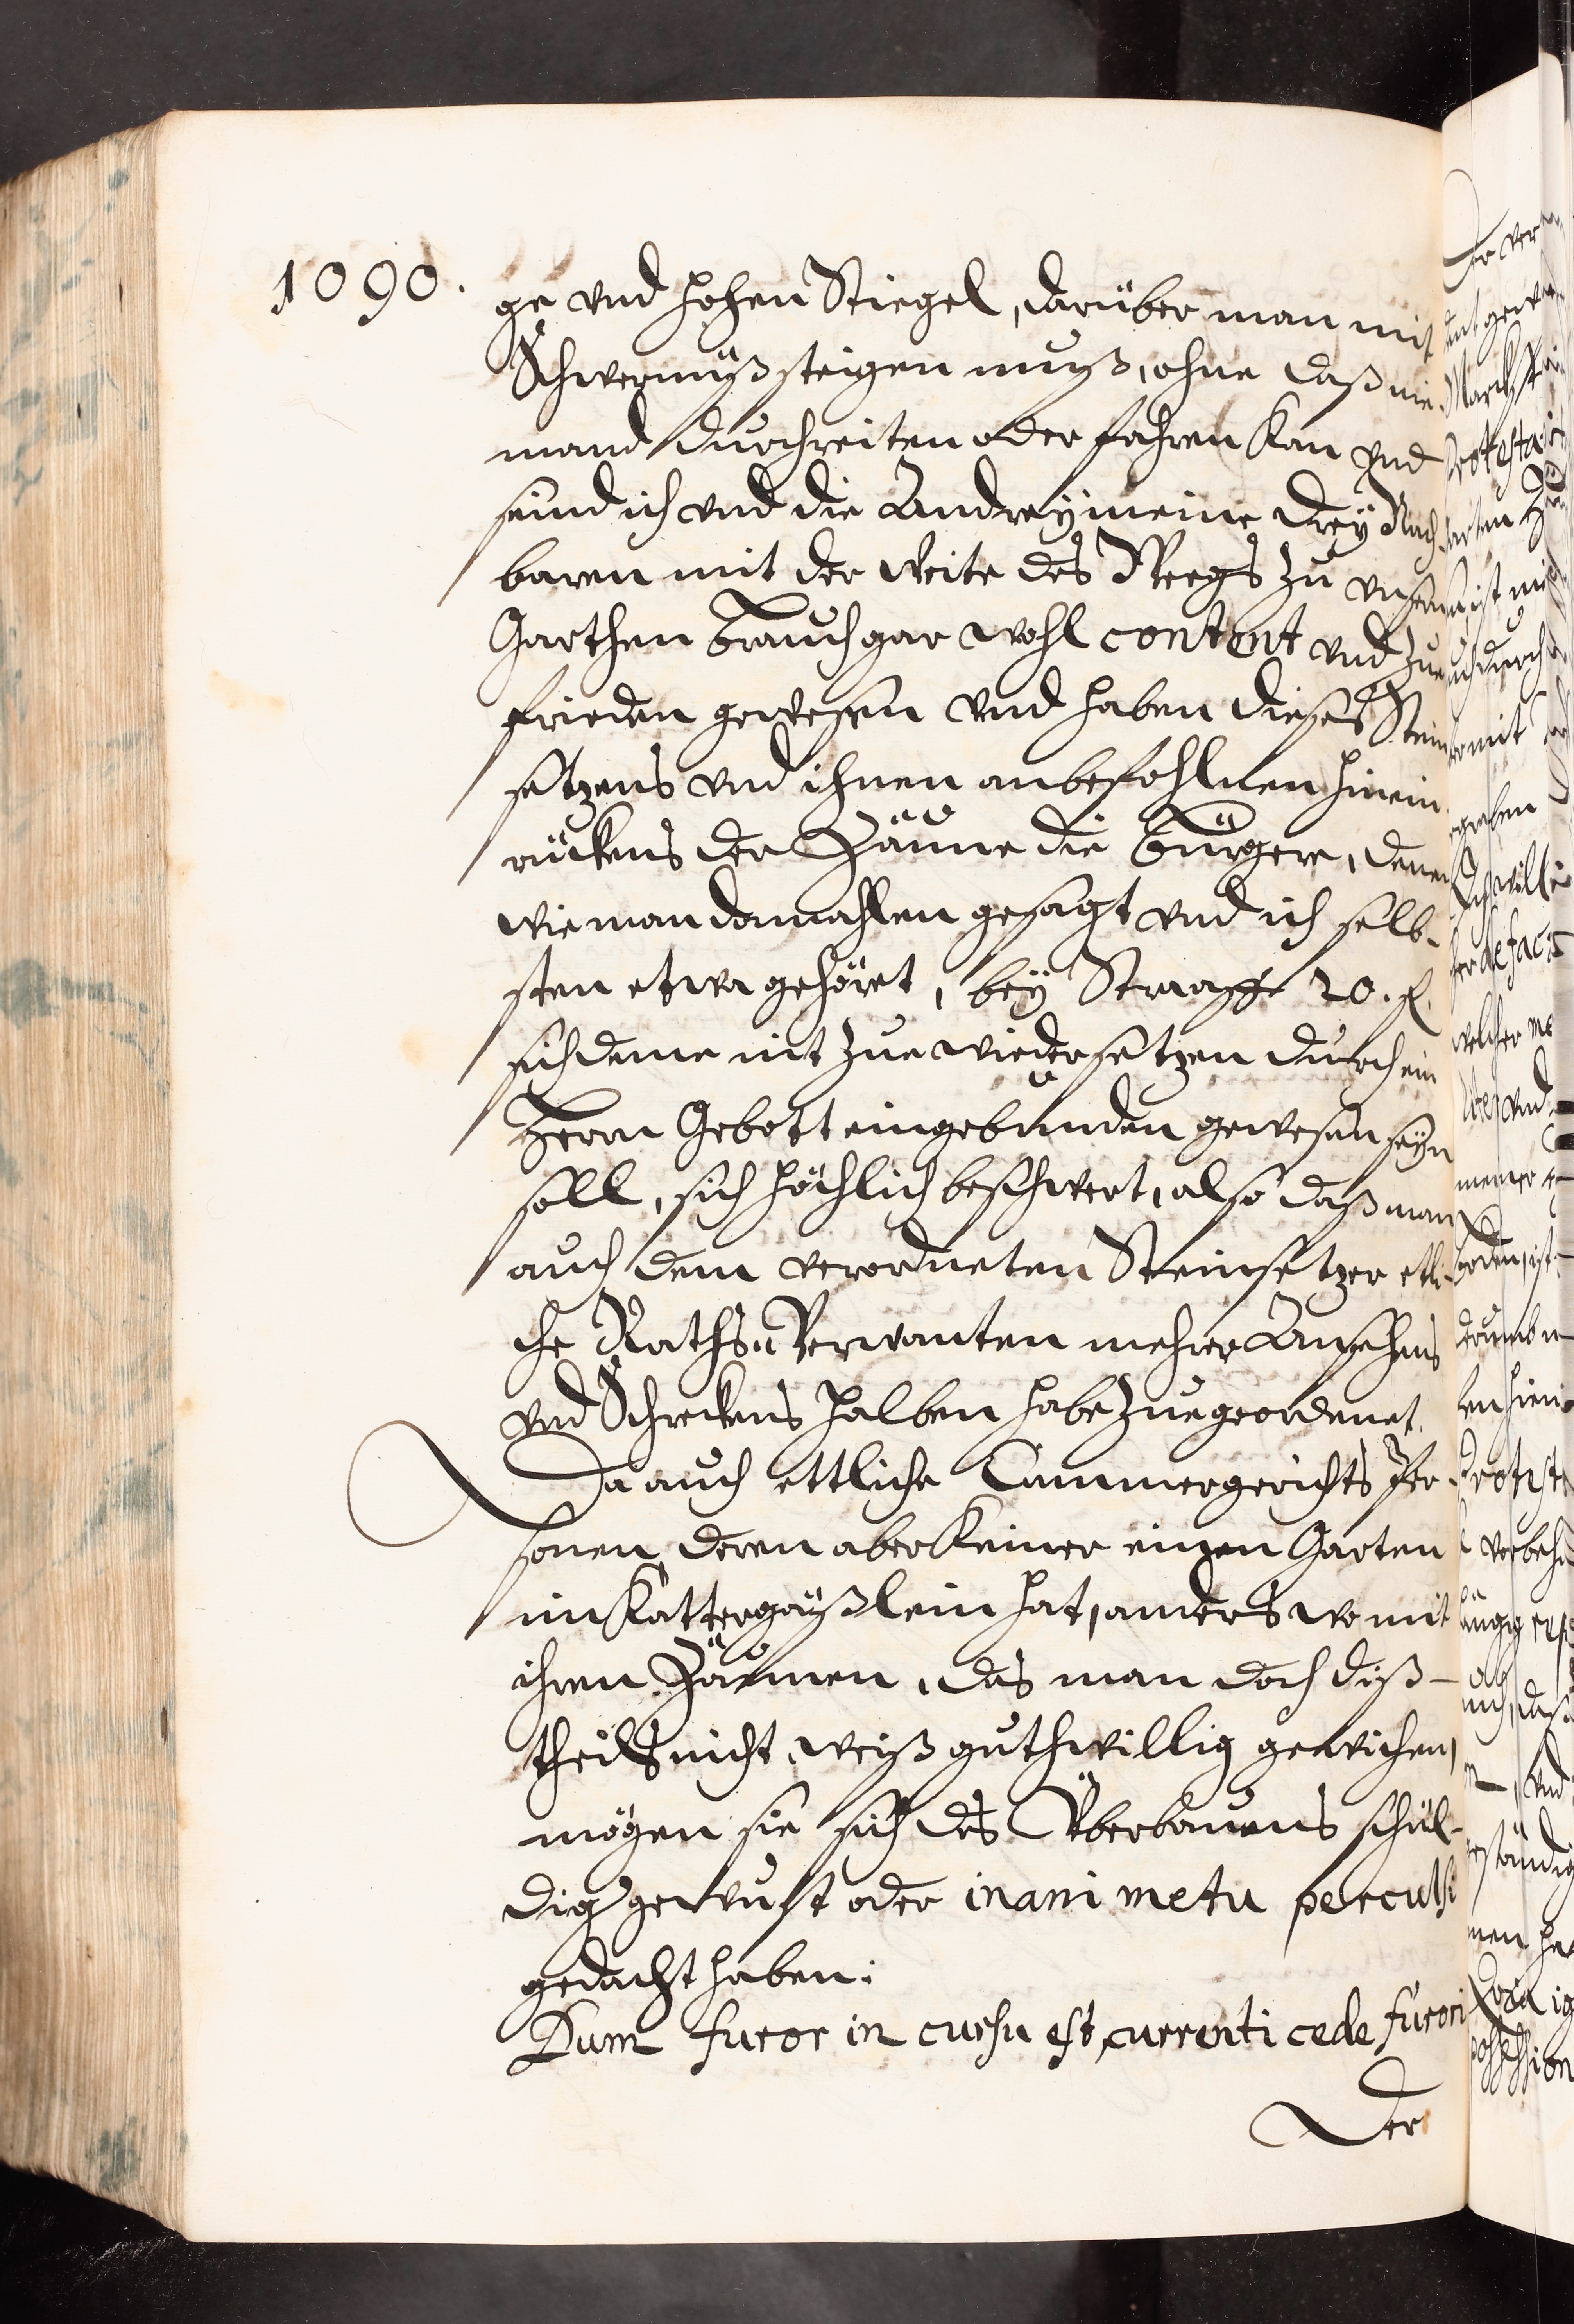 1090.
ge vnd hohen Stiegel, darüber man mit
Schwermüß steigen muß, ohne daß nie-
mand durchreiten oder fahren kan vnd
seind ich vnd die Andreÿ meine dreÿ Nach-
baren mit der Weite des Weegs zu vnsern
Garthen Brauch gar wohl content vnd zue
frieden gewesen vnd haben dieses Stein
setzens vnd ihnen anbefohlnen hinein
rückens der Zäüne die Bürgere, denen
wie man damahlen gesagt vnd ich selb-
sten etwa gehöret, beÿ Straaffe 20. fl.
sich deme nit zue wiedersetzen durch ein
Herrn Gebott eingebunden gewesen seÿn
soll, sich höchlich beschwert, also daß man
auch dem verordneten Steinsetzer etli-
che Raths Verwanten mehrer Ansehens
vnd Schreckens halben habe zuegeordenet.
Da auch ettliche Cammergerichts Per-
sonen deren aber keiner einen Garten
im Kattergäßlein hat, anders wo mit
ihren Zäünen, das man doch diß-
theils nicht weiß guthwillig gewichen,
mögen sie sich des Überbauens schul-
dig gewust oder inani metu perculsi
gedacht haben:
Dum furor in cursu est, currenti cede furori
Der